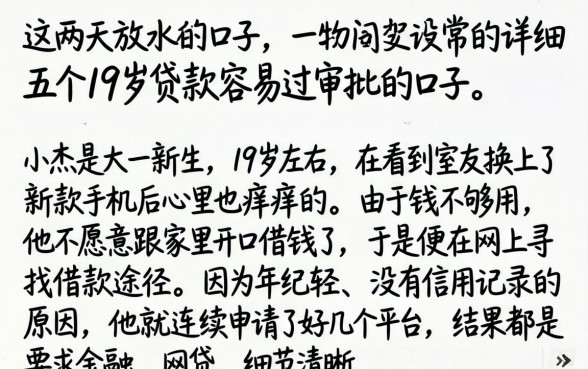 这两天放水的口子，一物阅契设常的详细
五个19岁贷款容易过审批的口子。
小杰是大一新生，19岁左右，在看到室友换上了
新款手机后心里也痒痒的。由于钱不够用，
他不愿意跟家里开口借钱了，于是便在网上寻
找借款途径。因为年纪轻、没有信用记录的
原因，他就连续申请了好几个平台，结果都是
要求金融、网贷、细节清晰